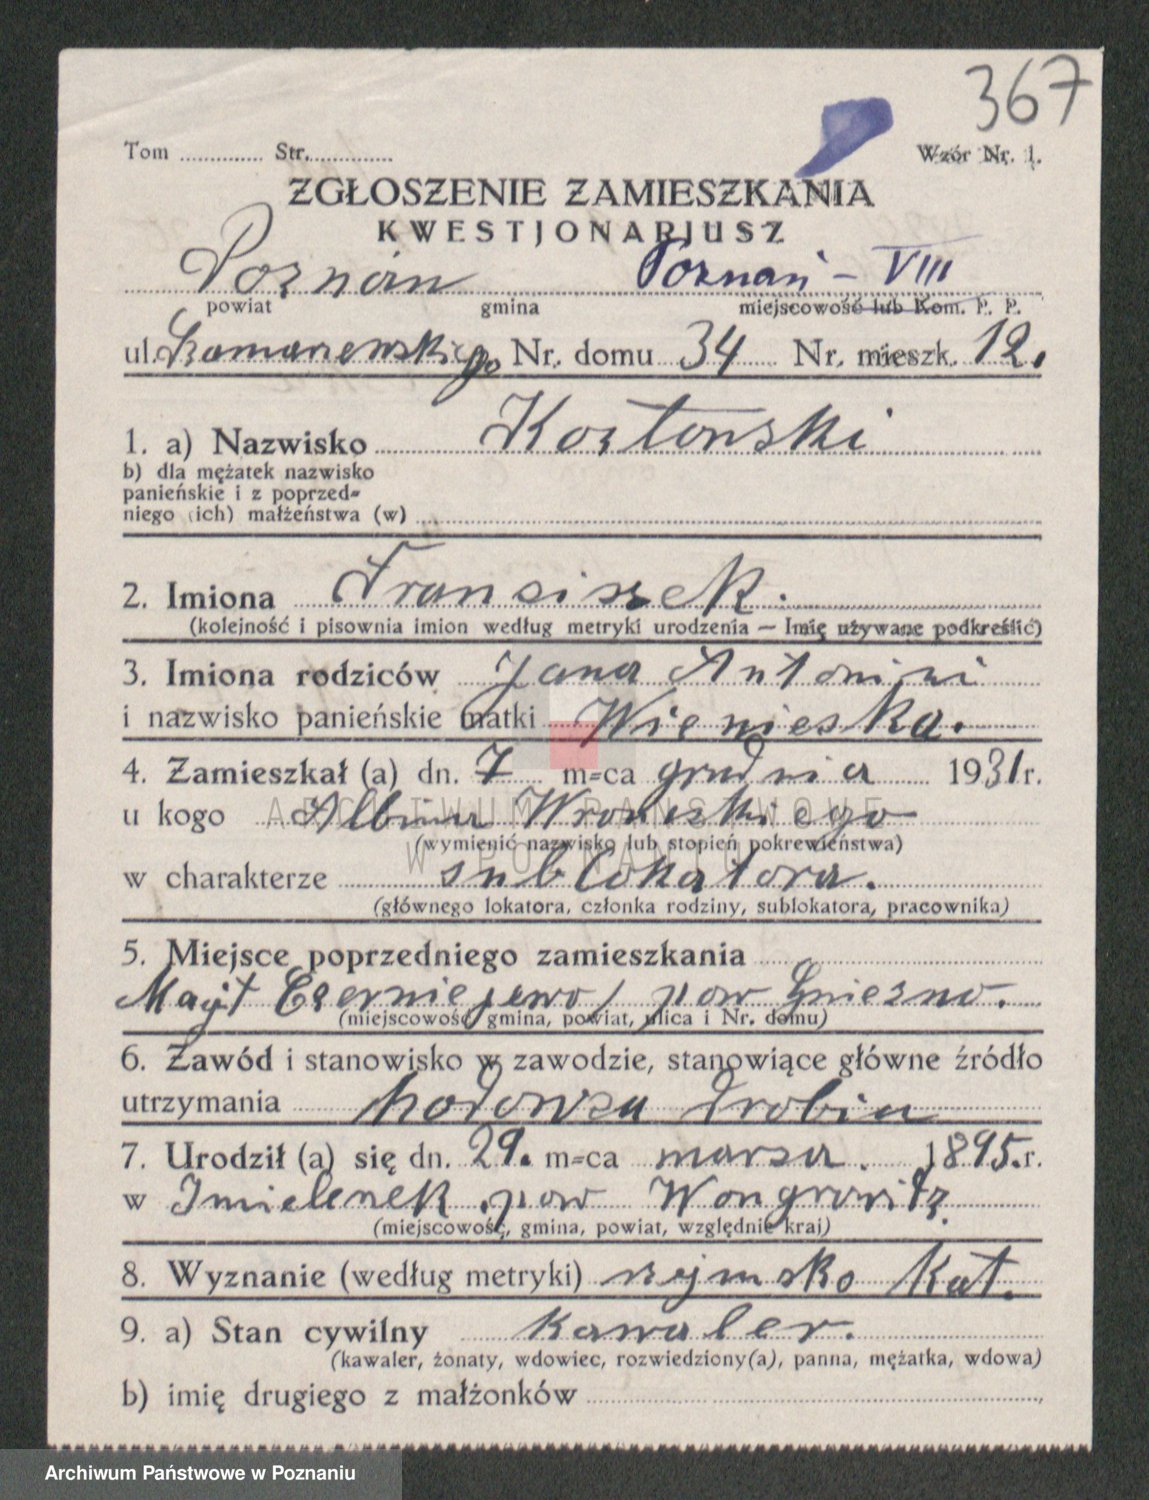 367
Tom ............ Str. ............ Wzór Nr. 1.
ZGŁOSZENIE ZAMIESZKANIA
KWESTJONARJUSZ
Poznań Poznań – VIII
powiat gmina miejscowość lub Kom. P. P.
ul. Szamarzewskiego Nr. domu 34 Nr. mieszk. 12.
1. a) Nazwisko Koztowski
b) dla mężatek nazwisko
panieńskie i z poprzed-
niego (ich) małżeństwa (w)
2. Imiona Franciszek.
(kolejność i pisownia imion według metryki urodzenia — Imię używane podkreślić)
3. Imiona rodziców Jana Antonini
i nazwisko panieńskie matki
4. Zamieszkał (a) dn. 7 m-ca grudnia 1931 r.
ARCHIWUM PAŃSTWOWE
u kogo Albina Wronskiego
(wymienić nazwisko lub stopień pokrewieństwa)
W POZNANIU
w charakterze sublokatora.
(głównego lokatora, członka rodziny, sublokatora, pracownika)
5. Miejsce poprzedniego zamieszkania
Majt Czerniejewo, pow Gniezno.
(miejscowość, gmina, powiat, ulica i Nr. domu)
6. Zawód i stanowisko w zawodzie, stanowiące główne źródło
utrzymania hodowza drobiu
7. Urodził (a) się dn. 29. m-ca marsa. 1895. r.
w Imielenek pow Wongrowitz
(miejscowość, gmina, powiat, względnie kraj)
8. Wyznanie (według metryki) rzymsko Kat.
9. a) Stan cywilny kawaler.
(kawaler, żonaty, wdowiec, rozwiedziony(a), panna, mężatka, wdowa)
b) imię drugiego z małżonków
Archiwum Państwowe w Poznaniu